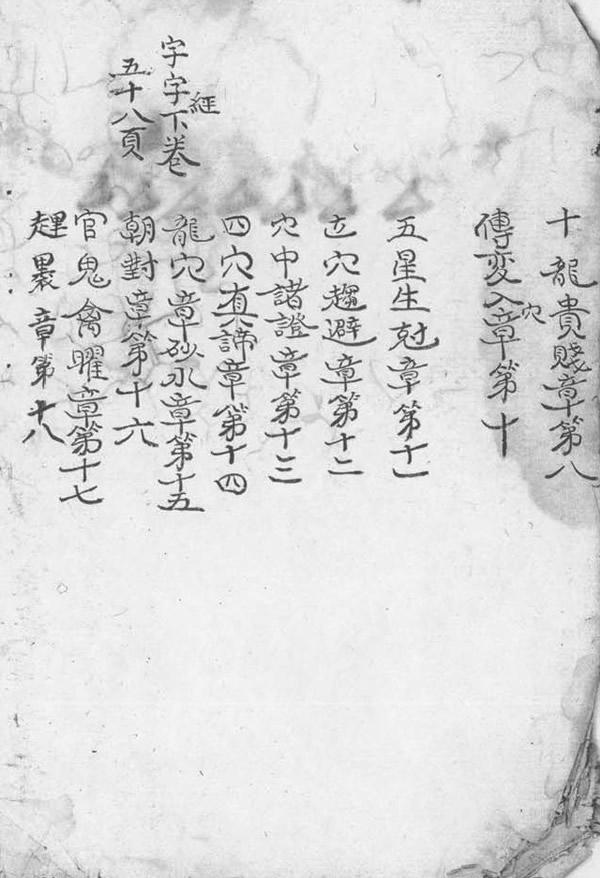 十龍貴賤章第八
傳変入穴章第十
五星生尅章第十一
立穴趨避章第十二
穴中諸證章第十三
四穴真諦章第十四
龍穴章砂水章第十五
朝對章第十六
官鬼禽曜章第十七
章第十八
字字經下卷
五十八頁